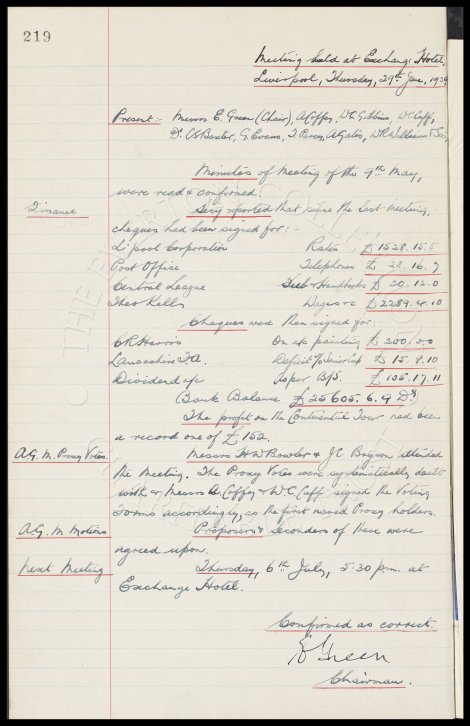 219
Meeting held at Exchange Hotel,
Liverpool, Thursday, 29th June, 1939
Present:- Messrs E. Green (Chair), A Coffey, W C Gibbins, W C Cuff,
Dr C S Baxter, G Evans, T Percy, A Gates, W R Williams & Secy
Minutes of Meeting of the 9th May,
were read & confirmed.
Finance
Secy reported that since the last meeting,
cheques had been signed for:-
L'pool Corporation Rates £1528.15.5
Post Office Telephones £ 23.16.7
Central League Subs & Handbooks £ 20.12.0
Theo Kelly Wages &c £2289.4.10
Cheques were then signed for:-
C R Harris On a/c painting £ 200.0.0
Lancashire F.A. Deficit Senior Cup £ 15.8.10
Dividend a/c As per B/S. £ 105.17.11
Bank Balance £25605.6.9 Dr
The profit on the Continental Tour had been
a record one of £152.
A.G.M. Proxy Votes.
Messrs H W Bowler & J C Bryson attended
the Meeting. The Proxy Votes were systematically dealt
with & Messrs A. Coffey & W. C. Cuff signed the Voting
Forms accordingly, as the first named Proxy holders.
A.G.M. Motions
Proposers & seconders of these were
agreed upon.
Next Meeting
Thursday, 6th July, 5.30 p.m. at
Exchange Hotel.
Confirmed as correct
E Green
Chairman.